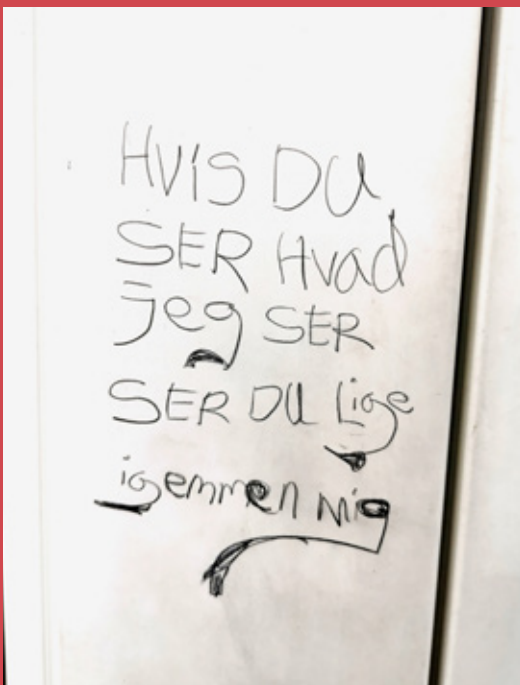 HViS DU
SER Hvad
jeg SER
SER DU Lige
igemmen Mig